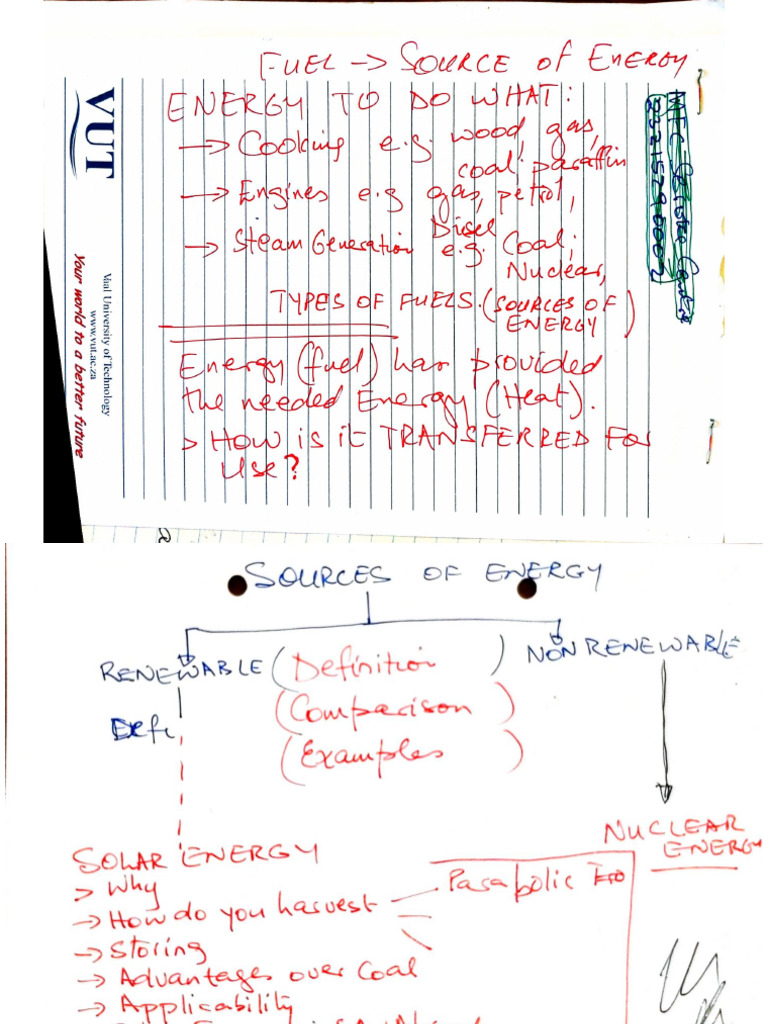 FUEL → SOURCE OF ENERGY
ENERGY TO DO WHAT:
→ Cooking e.g. wood, gas,
coal, paraffin
→ Engines e.g gas, petrol,
Diesel
→ Steam Generation e.g. Coal,
Nuclear,
TYPES OF FUELS. (SOURCES OF
ENERGY)
Energy (fuel) has provided
the needed Energy (Heat).
> HOW IS IT TRANSFERRED FOR
USE?
VUT
Vaal University of Technology
www.vut.ac.za
Your world to a better future
SOURCES OF ENERGY
RENEWABLE (Definition) NON RENEWABLE
Defi (Comparison)
(Examples)
NUCLEAR
ENERGY
SOLAR ENERGY
> Why
→ How do you harvest Parabolic
→ Storing
→ Advantages over Coal
→ Applicability